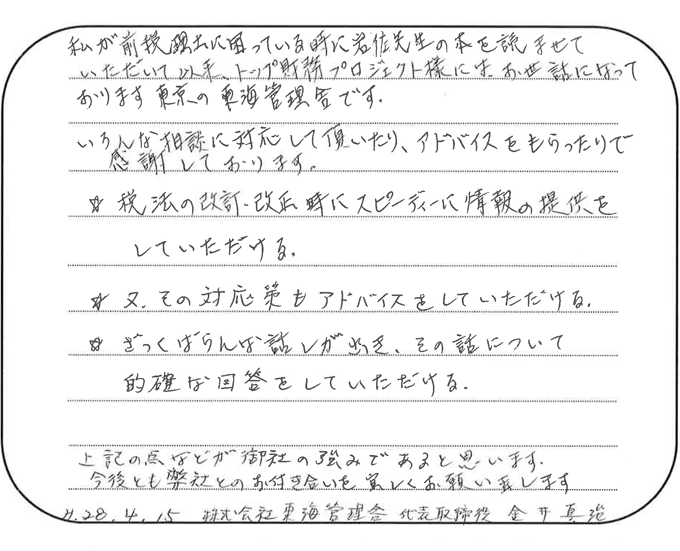 私が前税理士に困っている時に岩佐先生の本を読ませて
いただいて以来、トップ財務プロジェクト様にはお世話になって
おります東京の東海管理舎です.
いろんな相談に対応して頂いたり、アドバイスをもらったりで
感謝しております。
☆ 税法の改訂・改正時にスピーディーに情報の提供を
していただける.
☆ 又、その対応策もアドバイスをしていただける.
☆ ざっくばらんな話しができ、その話について
的確な回答をしていただける.
上記の点などが御社の強みであると思います.
今後とも弊社とのお付き合いを宜しくお願い致します
H.28.4.15 株式会社東海管理舎 代表取締役 金井真治